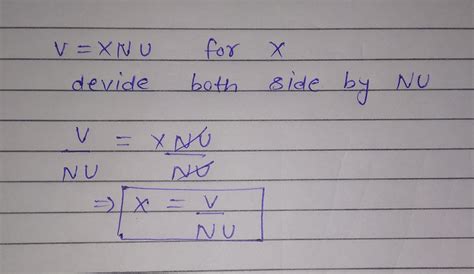 V = XNU for X
devide both side by NU
V/NU = X NU/NU
⇒ X = V/NU